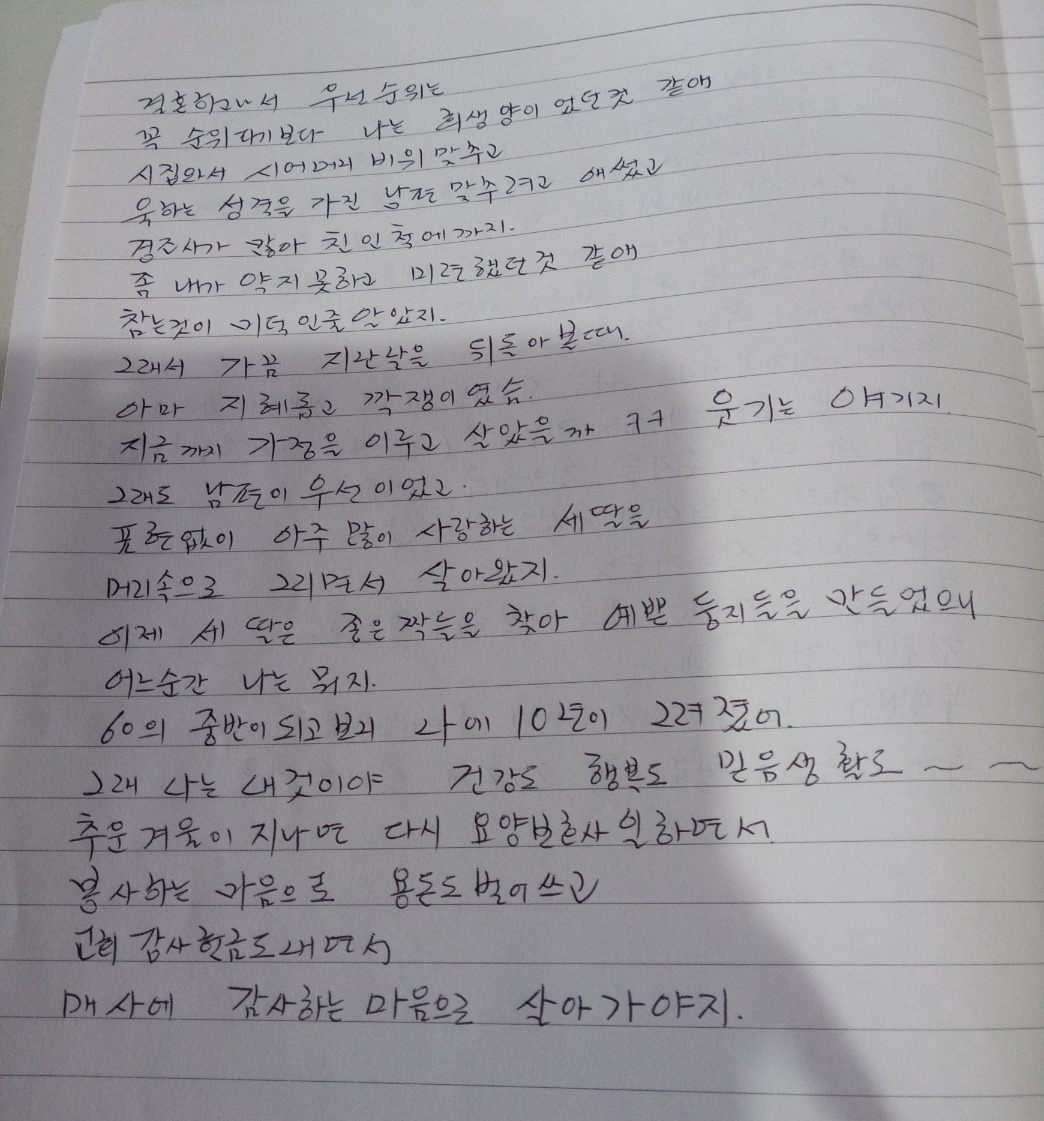 결혼하고나서 우선순위는
꼭 순위라기보다 나는 희생양이었던것 같애
시집와서 시어머니 비위 맞추고
욱하는 성격을 가진 남편 맞추려고 애썼고
경조사가 많아 친인척에까지.
좀 내가 약지못하고 미련했던것 같애
참는것이 미덕인줄 알았지.
그래서 가끔 지난날을 뒤돌아볼때.
아마 지혜롭고 깍쟁이였슴.
지금까지 가정을 이루고 살았을까 ㅋㅋ 웃기는 얘기지.
그래도 남편이 우선이었고.
표현없이 아주 많이 사랑하는 세딸을
머리속으로 그리면서 살아왔지.
이제 세 딸은 좋은 짝들을 찾아 예쁜 둥지들을 만들었으니
어느순간 나는 뭐지.
60의 중반이 되고보니 나에 10년이 그려졌어.
그래 나는 내것이야 건강도 행복도 믿음생활도 ~ ~
추운 겨울이 지나면 다시 요양보호사 일하면서
봉사하는 마음으로 용돈도 벌어쓰고
교회 감사헌금도 내면서
매사에 감사하는 마음으로 살아가야지.